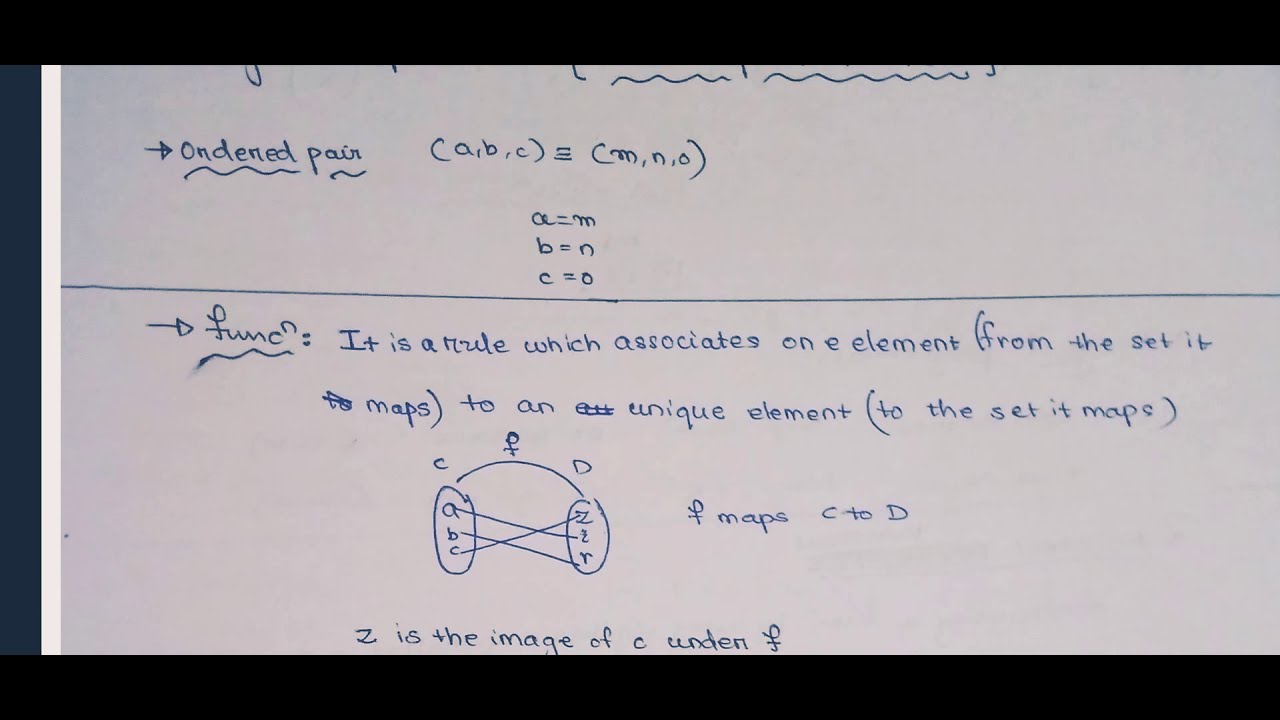 → Ordered pair (a,b,c) ≡ (m,n,o)
a=m
b=n
c=o
→ funcⁿ: It is a rule which associates one element (from the set it
maps) to an unique element (to the set it maps)
f
C D
a z
b
c r
f maps C to D
z is the image of c under f